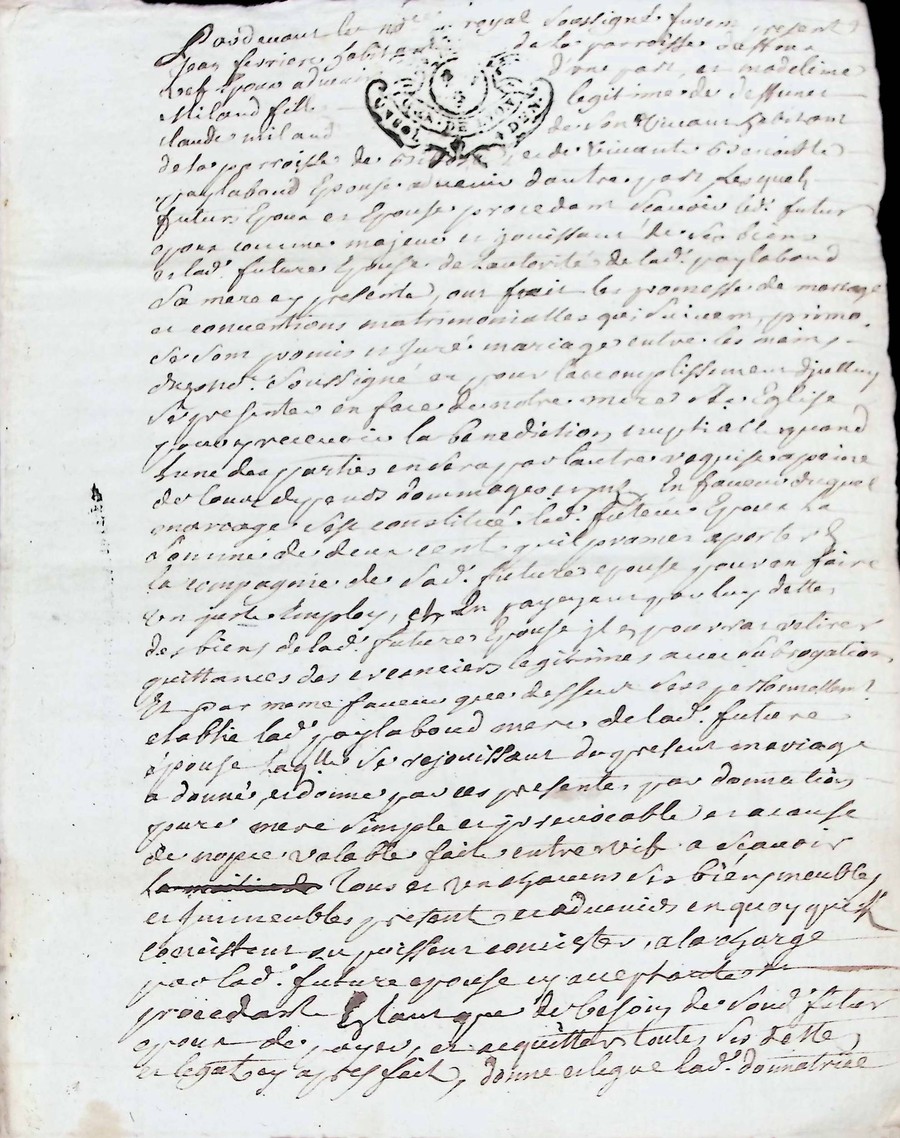 Pardevant le no.re royal soussigné furent present
jean ferriere habitant de la parroisse
veuf Epoux advenir d'une part, et madeleine
Miland fille legitime de deffunct
claude miland de son vivant habitant
de la parroisse de et de vivante benoiste
paylaboud Epouse advenir d'autre part Lesquels
futur Epoux et Epouse procedant scavoir led. futur
epoux comme majeur et jouissant de ses biens
et lad. future Epouse de Lautorité de lad. paylaboud
Sa mere cy presente, ont fait les promesse de mariage
et conventions matrimonialles qui suivent, primo
se sont promis et Juré mariage entre les mains
du no.re soussigné et pour laccomplissement dycelluy
se presenter en face de notre mere Ste Eglise
pour y recevoir la benediction nuptialle quand
Lune des parties en sera par lautre requise a peine
de tous depends dommages En faveur duquel
mariage s'est constitué led. futeur Epoux La
somme de deux cent qu'il promet aporter En
la compagnie de sad. future epouse pour en faire
un juste Employ, et En payement par luy dettes
des biens de lad. future Epouse il en pourra retirer
quittances des creanciers legitimes avec subrogation
Et par meme faveur que dessus s'est personnellement
etablie lad. paylaboud mere de lad. future
epouse Laq.lle se rejouissant du present mariage
a donné, et donne par ces presentes par donnation
pure mere simple et irrevocable et a cause
de nopce valable fait entre vif a scavoir
la moitie de Tous et un chacuns ses biens meubles
et Immeubles present et advenirs en quoy quils
consistent ou puissent concister, a la charge
par lad. future epouse cy acceptante
procedante Et tant que de besoin de sond. futur
epoux de payer, et acquitter toutes ses dettes
et legat cy apres fait, donne et legue lad. donnatrice